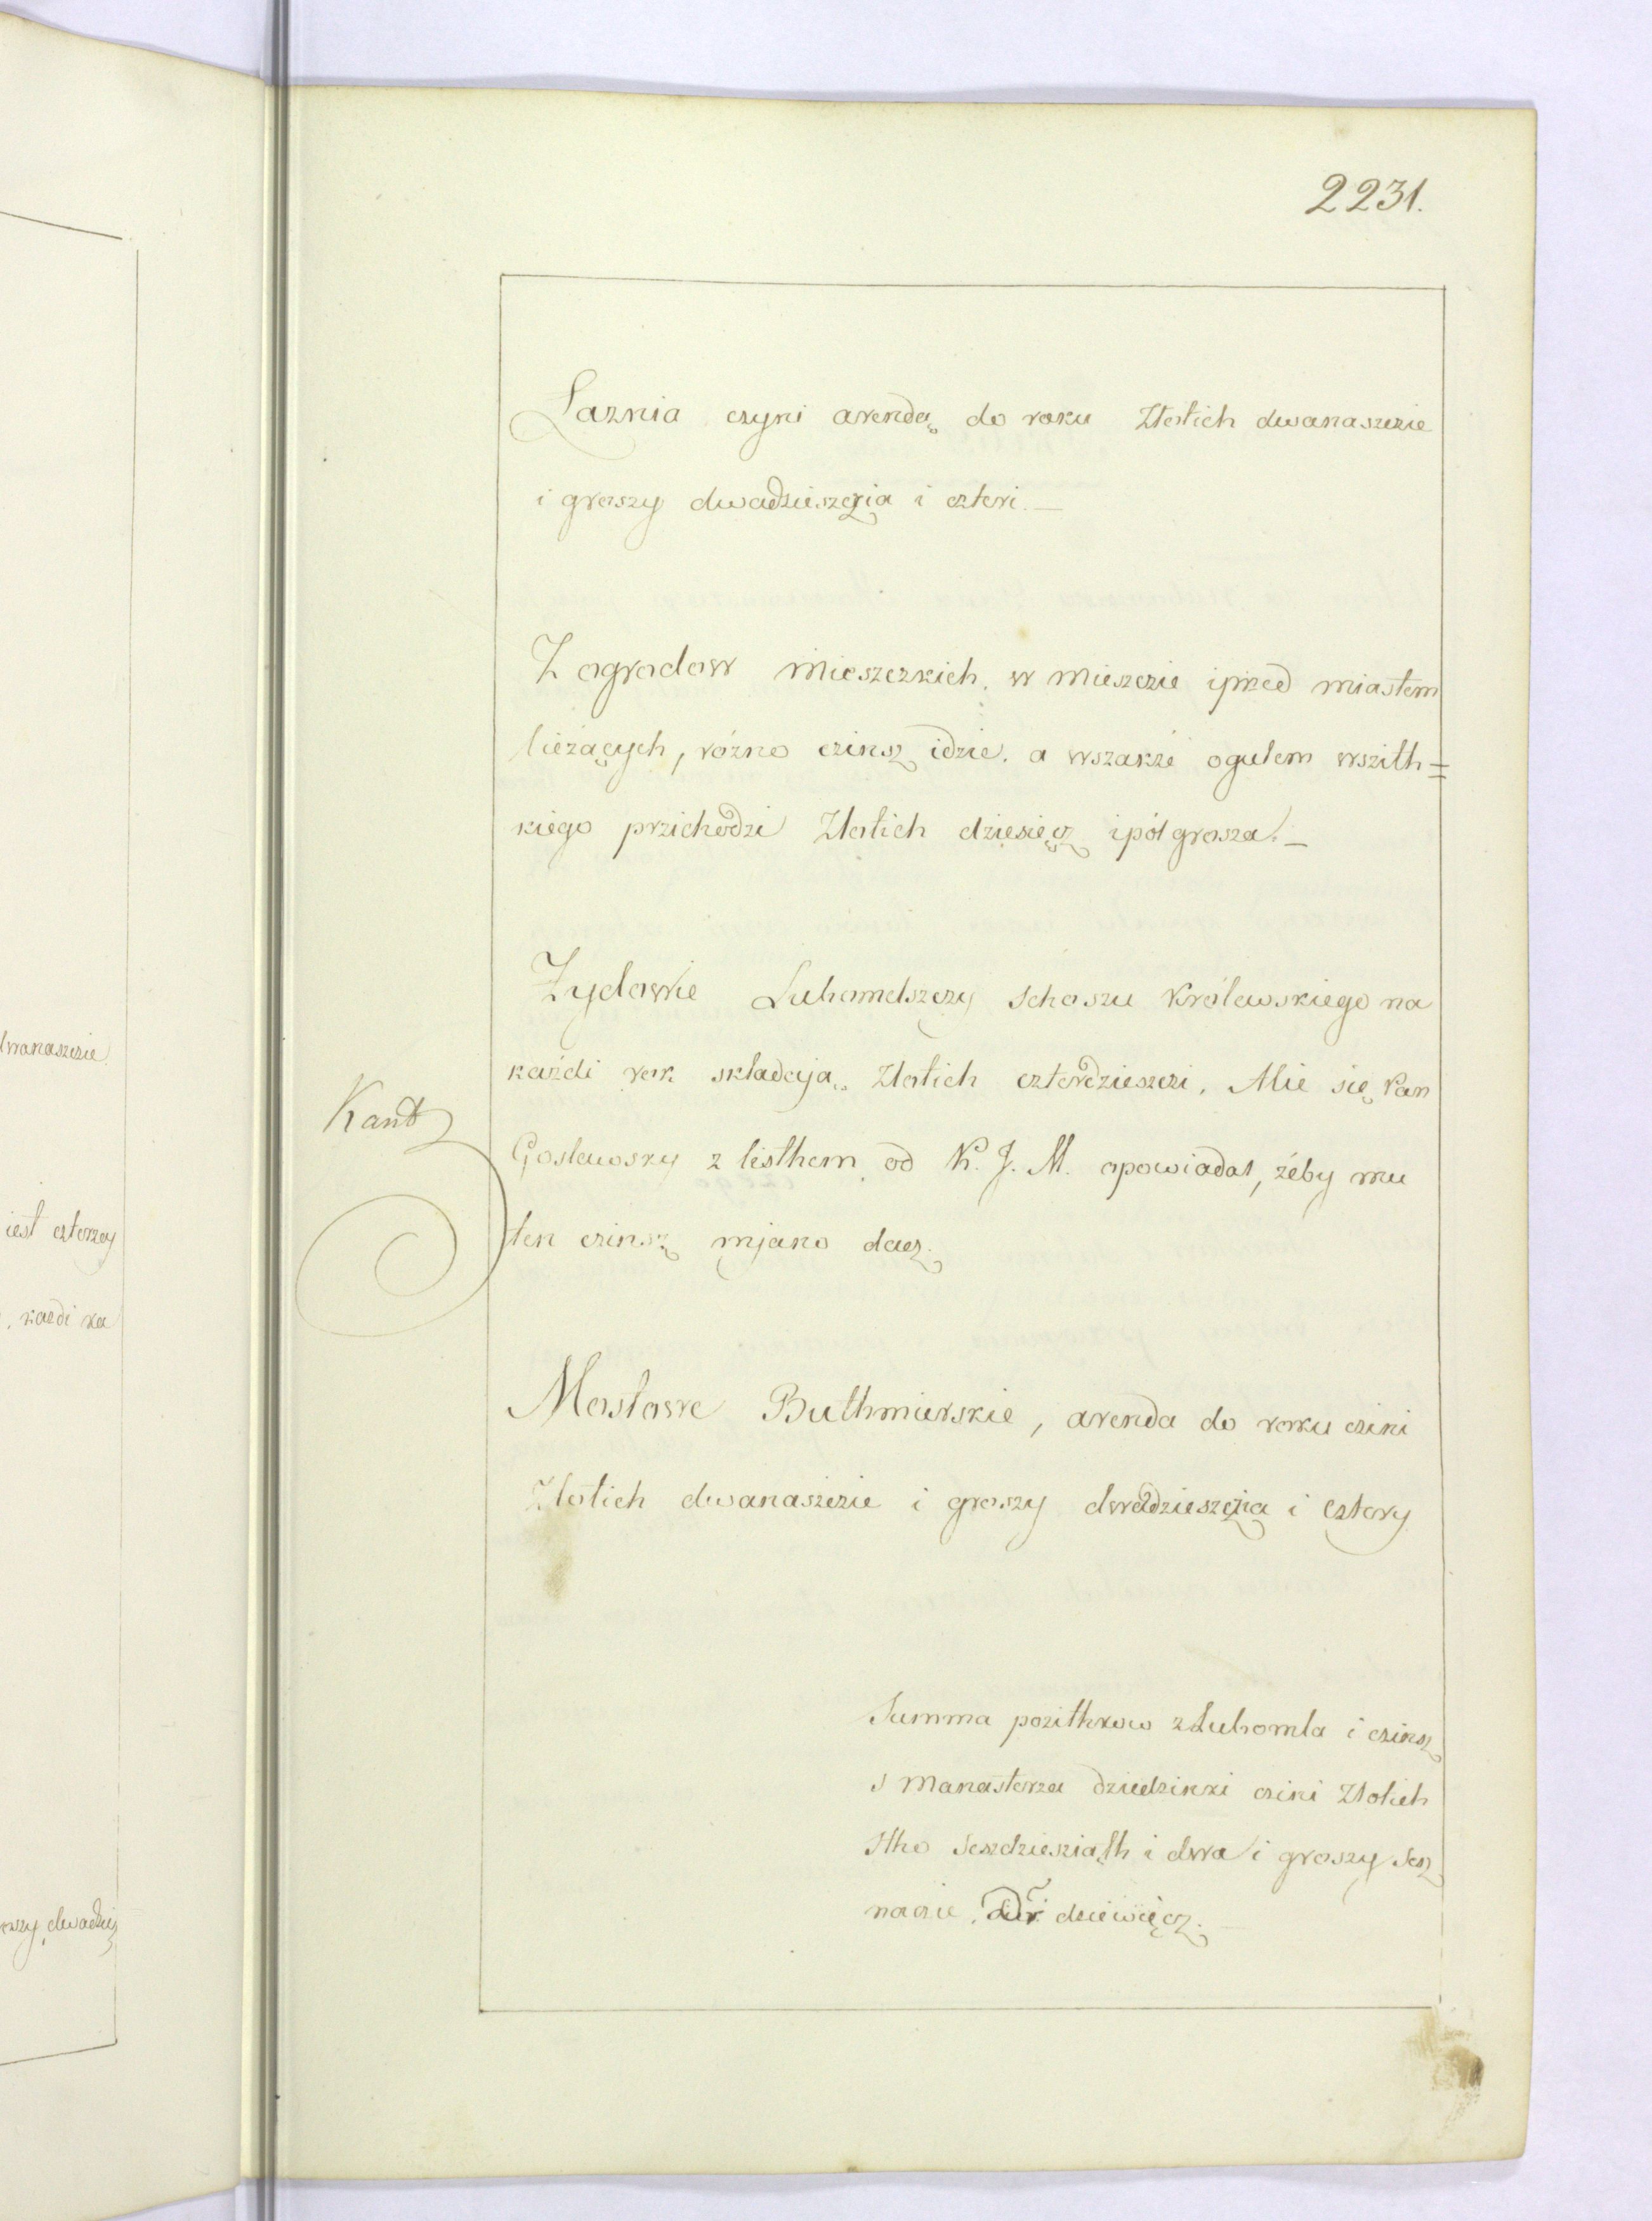 2231.
Łaznia czyni arendą do roku Złotich dwanaszczie
i groszy dwadzieszczia i czteri.
Z ogrodow mieszczkich w mieszczie i pried miastem
lieżących, rózno czinsz idzie. a wszakże ogułem wszith=
kiego przichodzi Złotich dziesięcz i pół grosza.
Zydowie Luhomelszczy schoszu królewskiego na
każdi rok składają Złotich czterdzieszczi. Alie się Pan
Gosławsky z listhem od K. J. M. opowiadał, żeby mu
ten czinsz miano dacz.
Mostowe Buthmierskie, arenda do roku czini
Złotich dwanaszczie i groszy dwadzieszczia i cztery
Summa pozithkow z Luhomla i czinsz
s Manasterza dziedzinki czini Złotich
Stho Seszdziesziąth i dwa i groszy Sesz
nacie. dziewięcz.
dwanaszczie
iest czterzy
kazdi ka